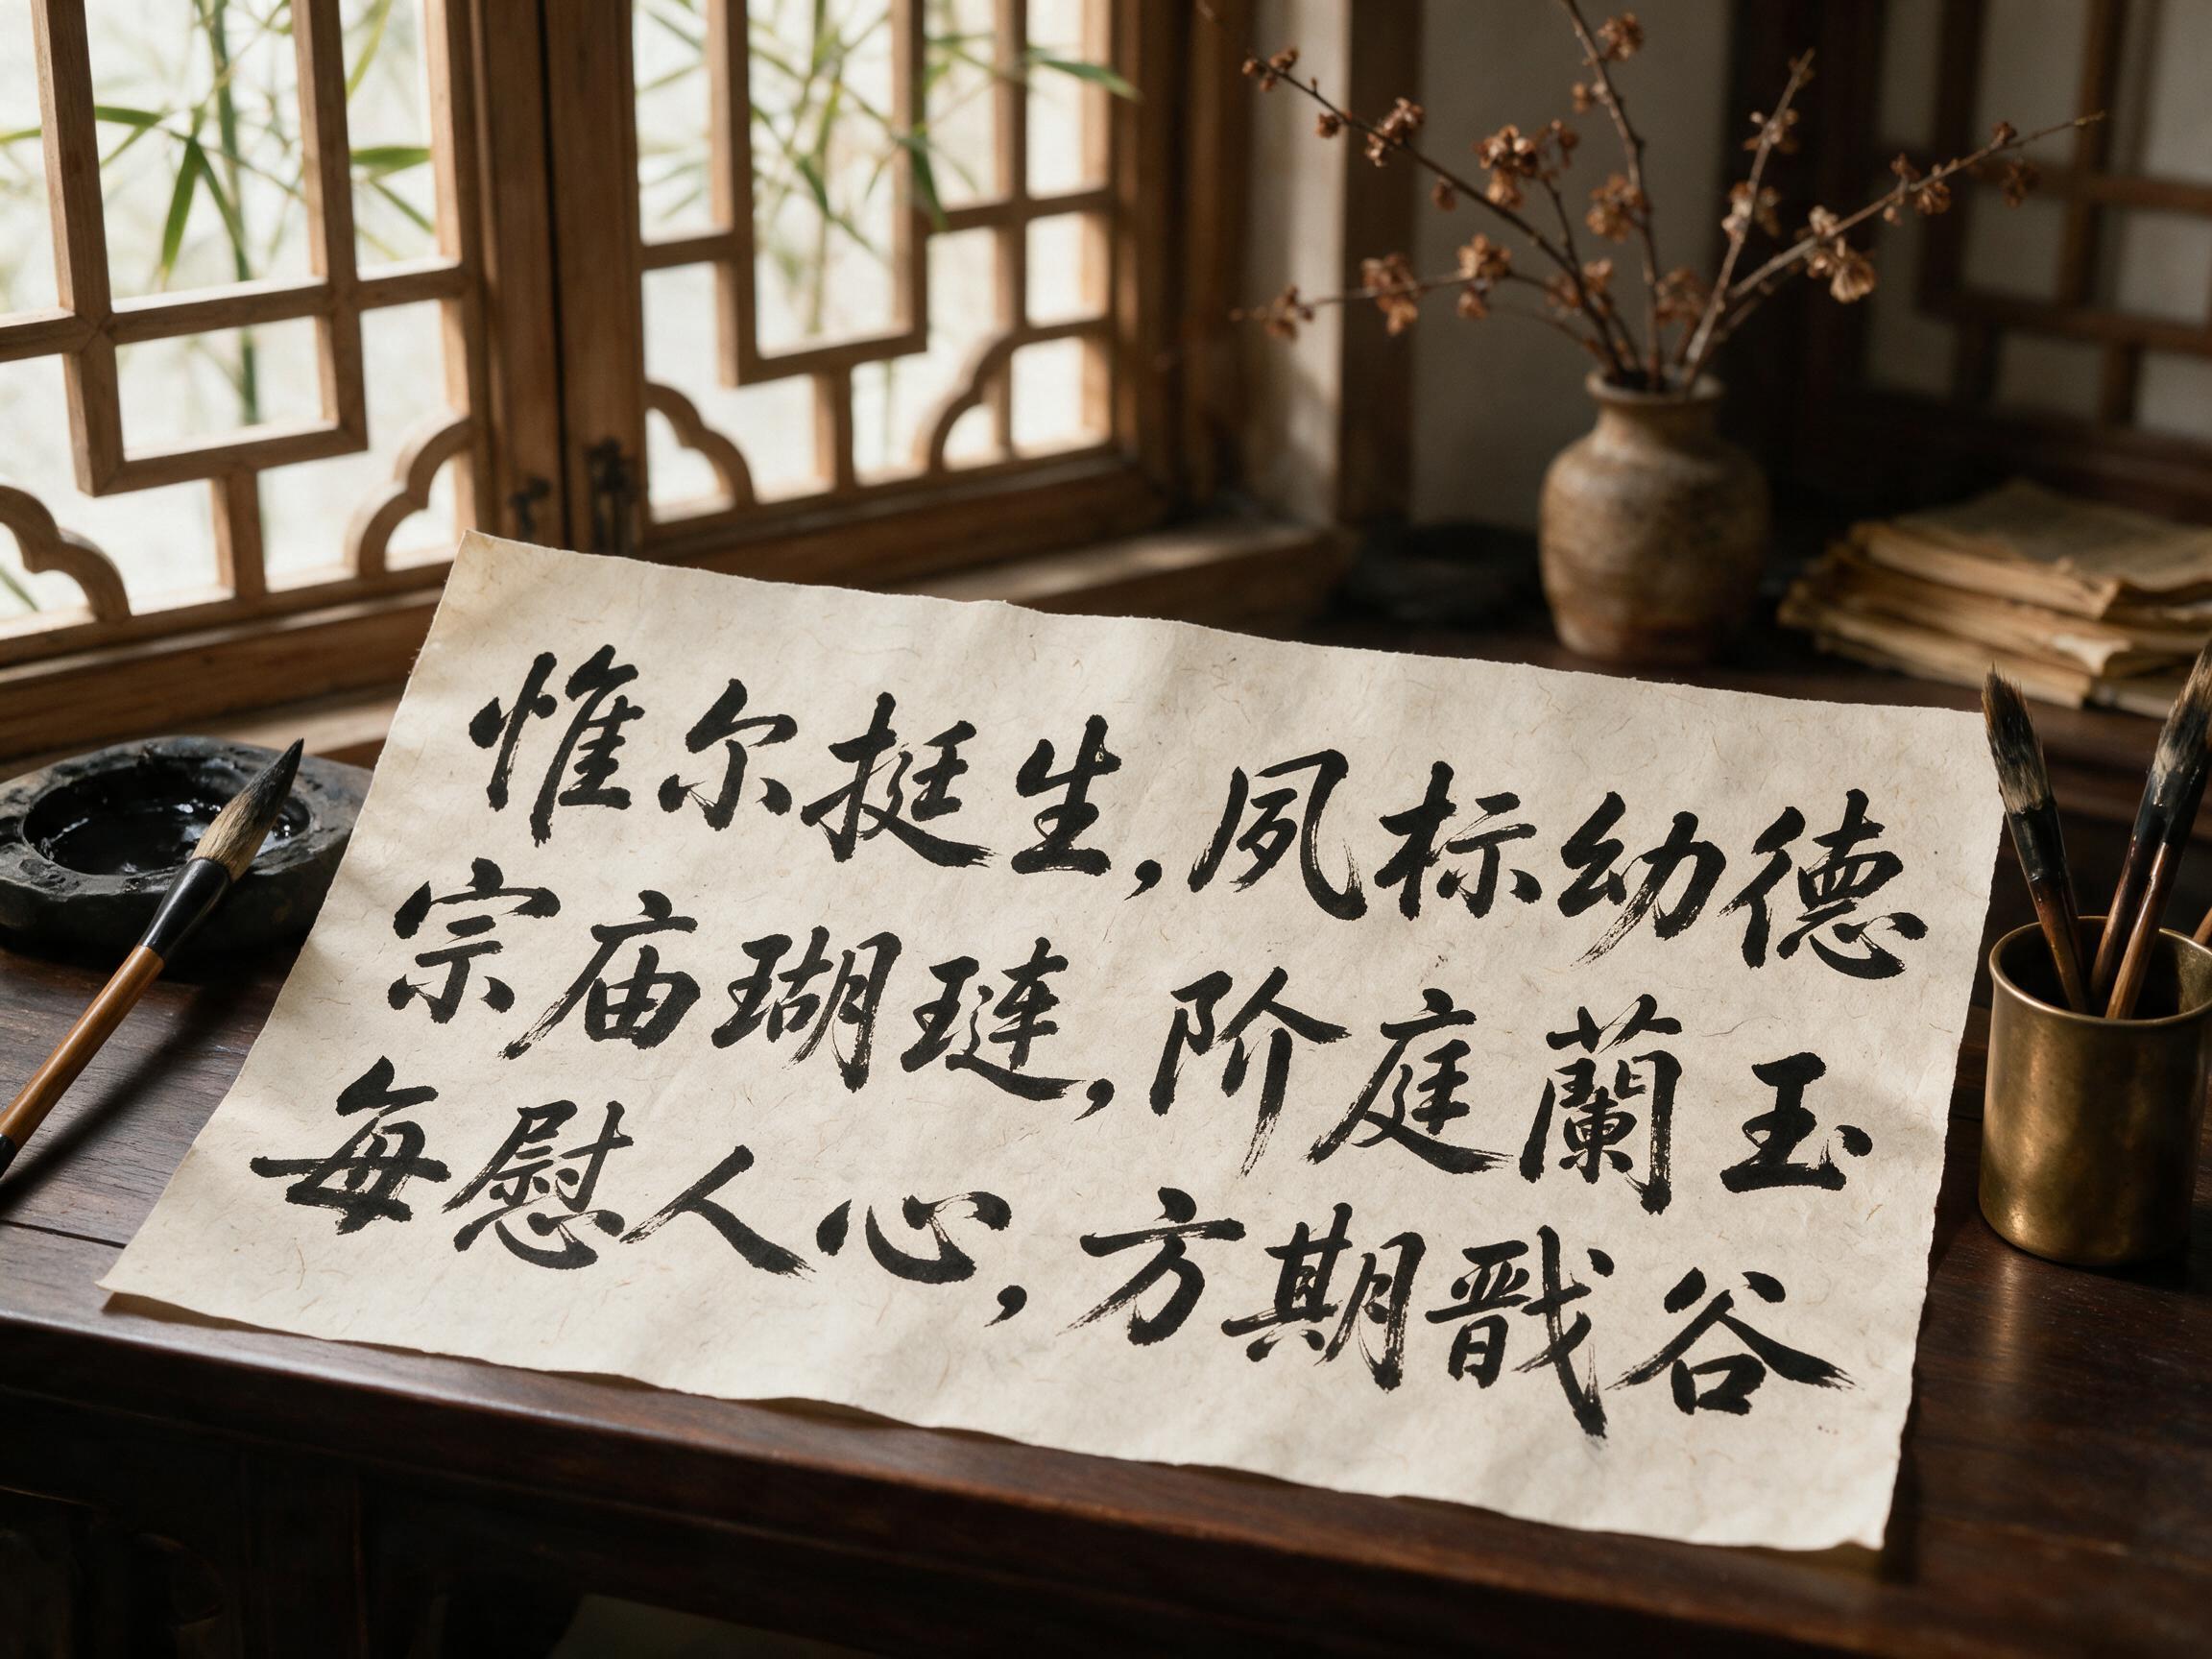 惟尔挺生，夙标幼德
宗庙瑚琏，阶庭蘭玉
每慰人心，方期戬谷